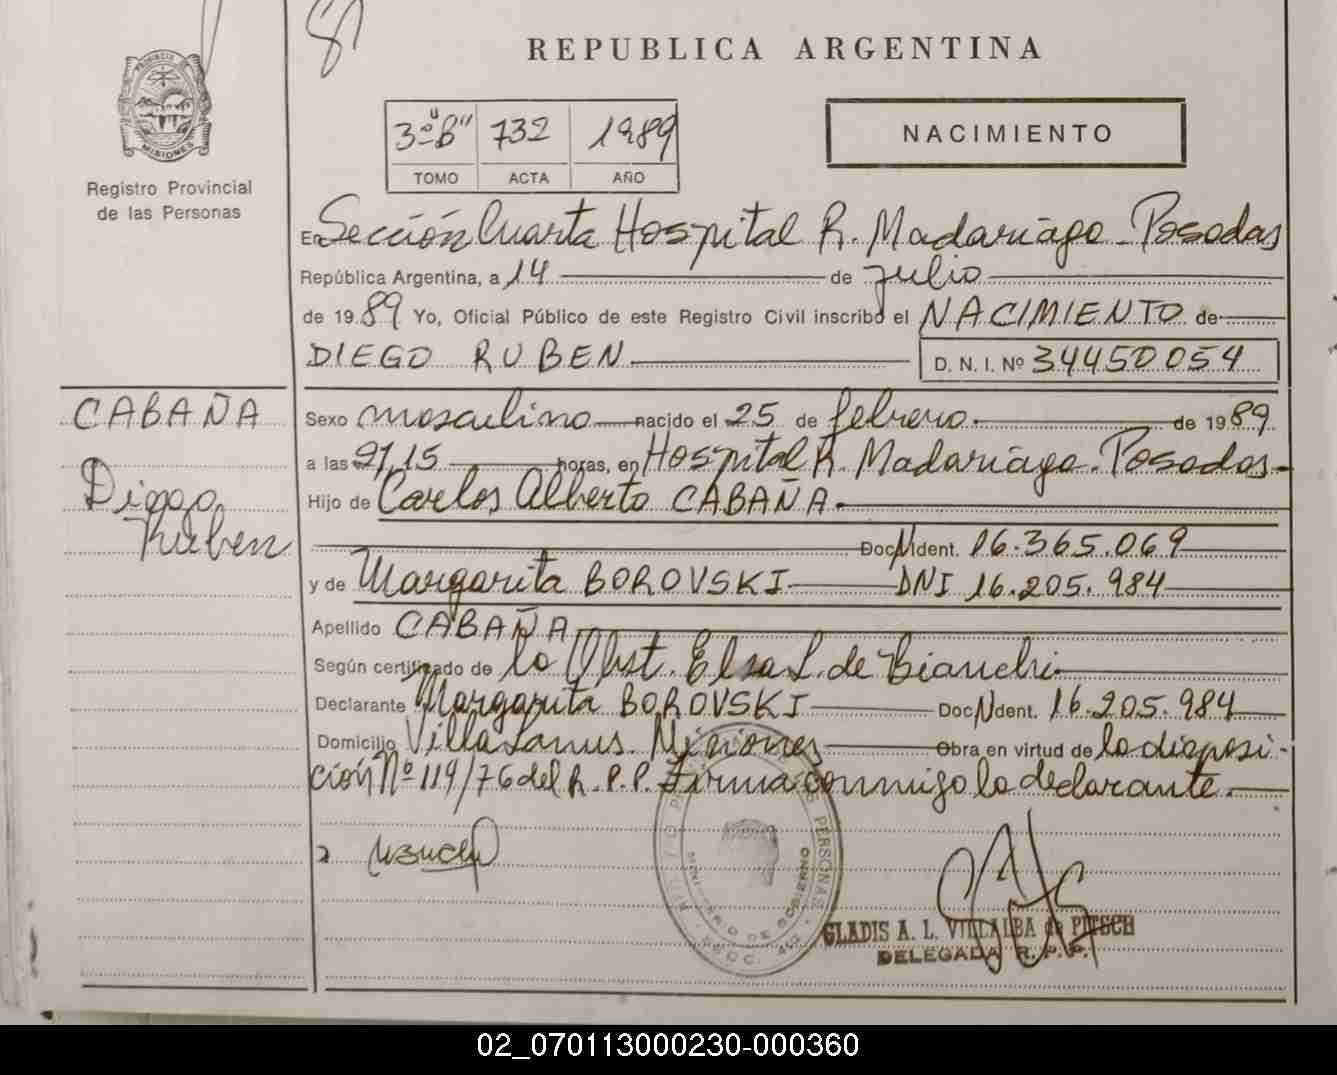 REPUBLICA ARGENTINA
PROVINCIA DE
MISIONES
Registro Provincial
de las Personas
3º "B" 732 1989
TOMO ACTA AÑO
NACIMIENTO
En Sección Cuarta Hospital R. Madariaga - Posadas
República Argentina, a 14 de julio
de 1989 Yo, Oficial Público de este Registro Civil inscribo el NACIMIENTO de
DIEGO RUBEN D. N. I. Nº 34450054
CABAÑA
Diego
Ruben
Sexo masculino nacido el 25 de febrero de 1989
a las 21,15 horas, en Hospital R. Madariaga - Posadas
Hijo de Carlos Alberto CABAÑA
Doc N Ident. 16.365.069
y de Margarita BOROVSKI DNI 16.205.984
Apellido CABAÑA
Según certificado de la Obst. Elsa L. de Bianchi
Declarante Margarita BOROVSKI Doc N Ident. 16.205.984
Domicilio Villa Lanus. Misiones Obra en virtud de la disposi-
ción Nº 119/76 del R. P. P. Firma conmigo la declarante.
PERSONAS
MINISTERIO DE GOBIERNO
GLADIS A. L. VILLALBA de PITSCH
DELEGADA R. P. P.
02_070113000230-000360